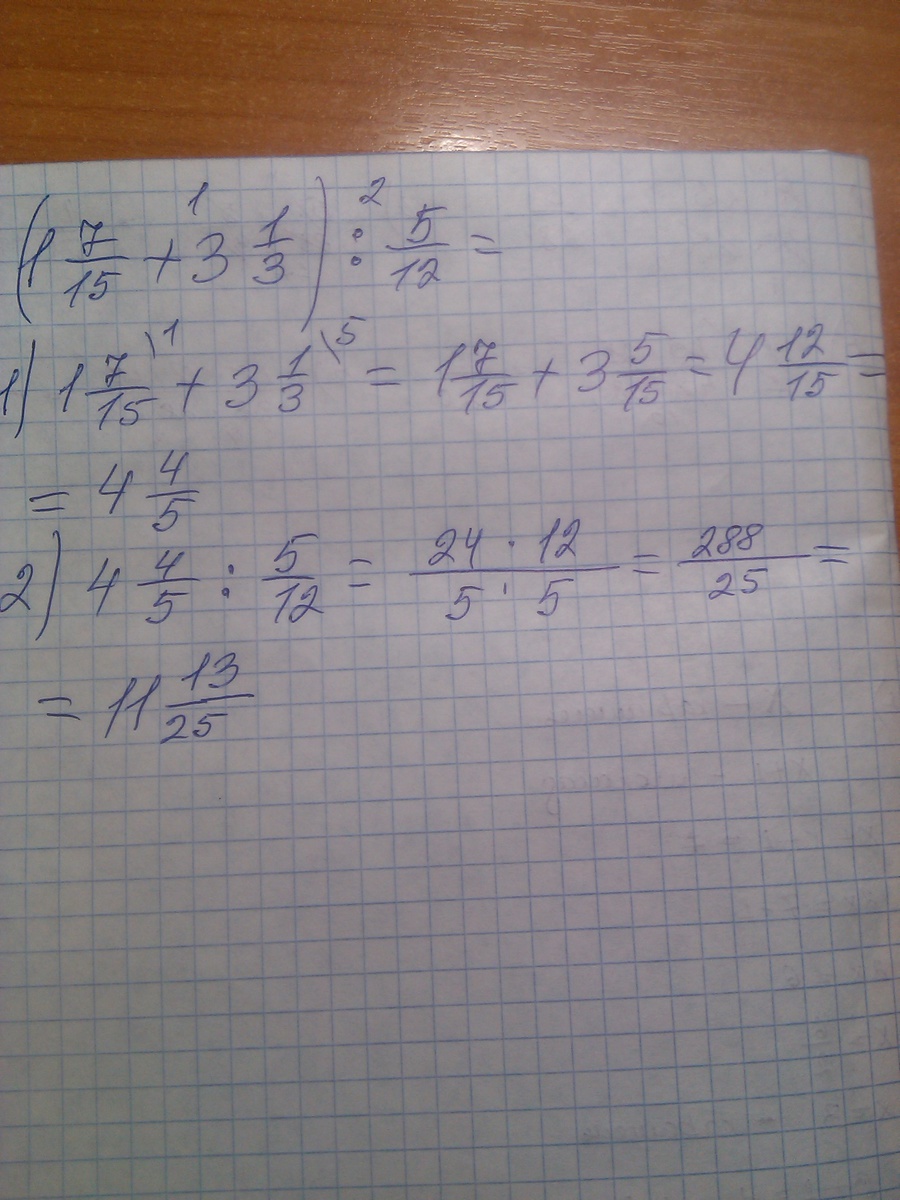 (1 7/15 + 3 1/3) : 5/12 =
1) 1 7/15 \1 + 3 1/3 \5 = 1 7/15 + 3 5/15 = 4 12/15 =
= 4 4/5
2) 4 4/5 : 5/12 = 24 · 12 / 5 · 5 = 288/25 =
= 11 13/25